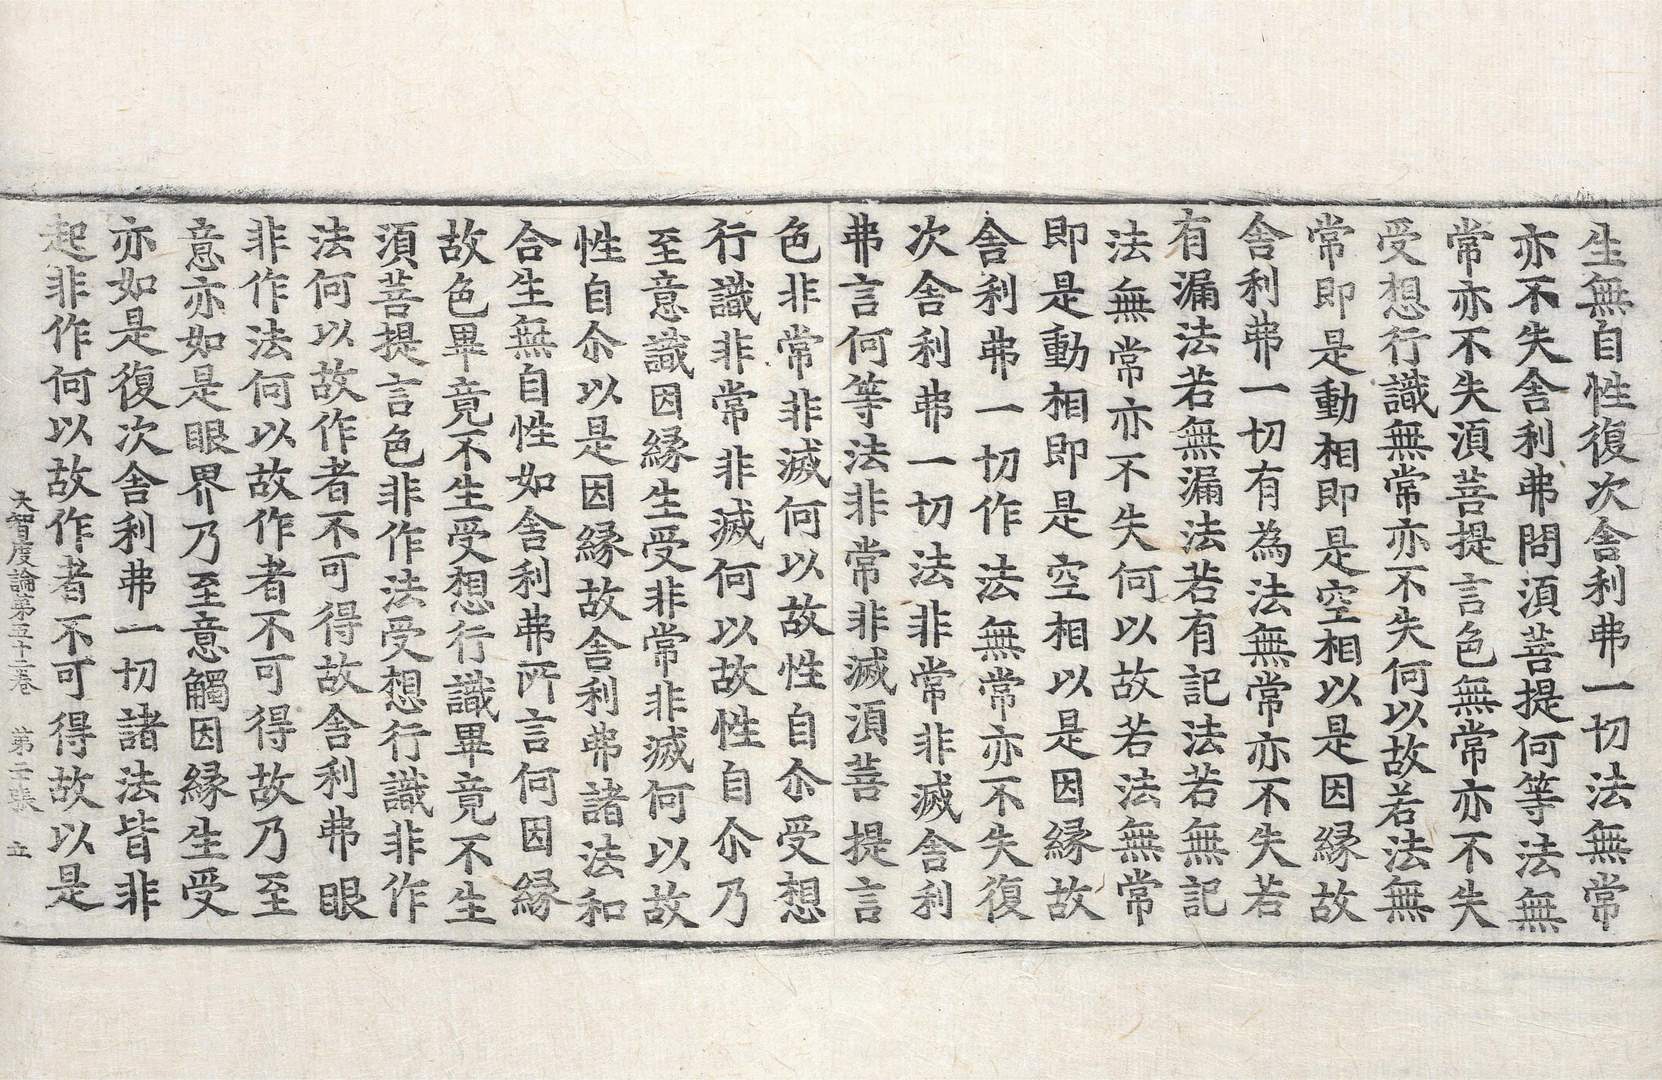 生無自性復次舍利弗一切法無常
亦不失舍利弗問湏菩提何等法無
常亦不失湏菩提言色無常亦不失
受想行識無常亦不失何以故若法無
常即是動相即是空相以是因緣故
舍利弗一切有為法無常亦不失若
有漏法若無漏法若有記法若無記
法無常亦不失何以故若法無常
即是動相即是空相以是因緣故
舍利弗一切作法無常亦不失復
次舍利弗一切法非常非滅舍利
弗言何等法非常非滅湏菩提言
色非常非滅何以故性自尒受想
行識非常非滅何以故性自尒乃
至意識因緣生受非常非滅何以故
性自尒以是因緣故舍利弗諸法和
合生無自性如舍利弗所言何因緣
故色畢竟不生受想行識畢竟不生
湏菩提言色非作法受想行識非作
法何以故作者不可得故舍利弗眼
非作法何以故作者不可得故乃至
意亦如是眼界乃至意觸因緣生受
亦如是復次舍利弗一切諸法皆非
起非作何以故作者不可得故以是
大智度論第五十三卷 第二張 立